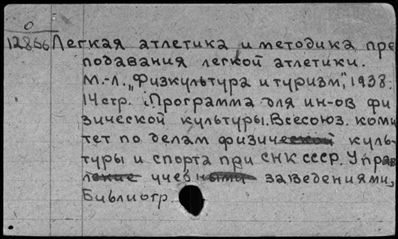 0
12866 Легкая атлетика и методика пре
подавания легкой атлетики.
М.-Л. „Физкультура и туризм", 1938.
14 стр. (Программа для ин-ов фи
зической культуры. Всесоюз. коми
тет по делам физической куль-
туры и спорта при СНК СССР. Управ
ление учебными заведениями,
Библиогр.